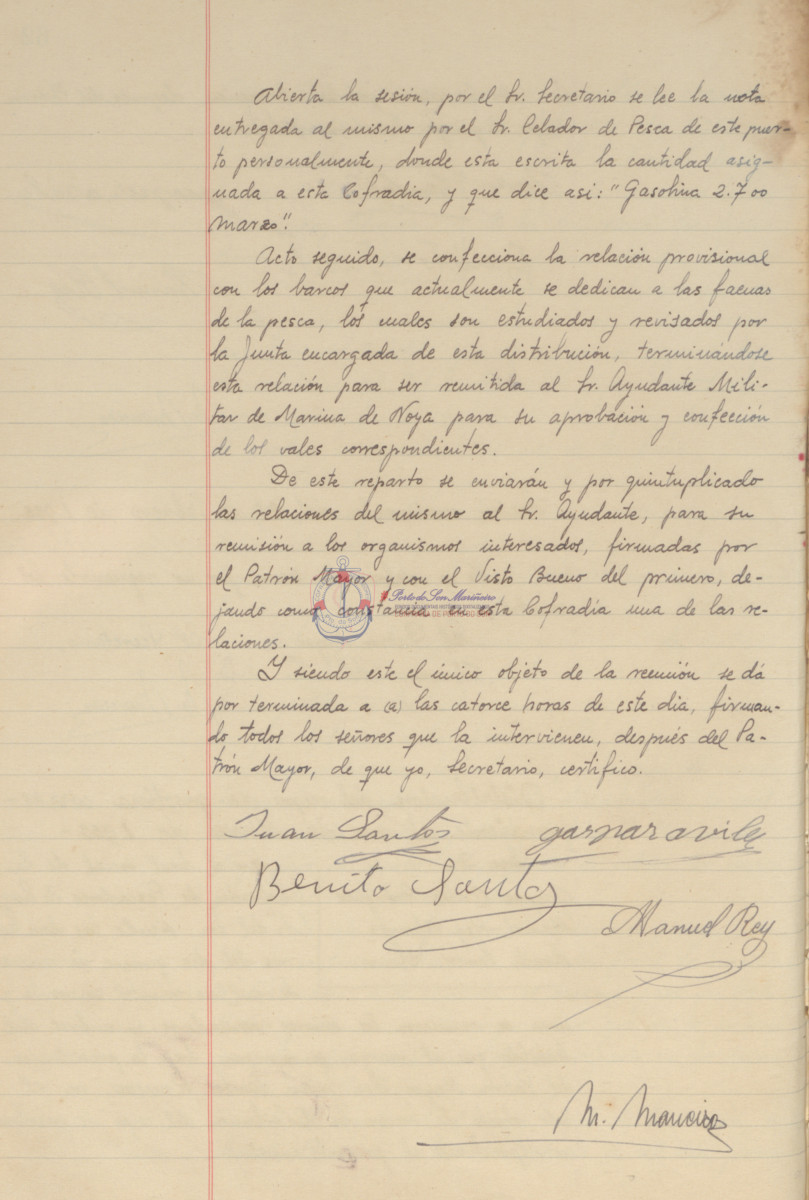 Abierta la sesión, por el Sr. Secretario se lee la nota
entregada al mismo por el Sr. Celador de Pesca de este puer-
to personalmente, donde esta escrita la cantidad asig-
nada a esta Cofradía, y que dice asi: "Gasolina 2.700
Marzo".
Acto seguido, se confecciona la relación provisional
con los barcos que actualmente se dedican a las faenas
de la pesca, los cuales son estudiados y revisados por
la Junta encargada de esta distribución, terminándose
esta relación para ser remitida al Sr. Ayudante Mili-
tar de Marina de Noya para su aprobación y confección
de los vales correspondientes.
De este reparto se enviarán y por quintuplicado
las relaciones del mismo al Sr. Ayudante, para su
remisión a los organismos interesados, firmadas por
el Patrón Mayor y con el Visto Bueno del primero, de-
Porto do Son Mariñeiro
jando como constancia en esta Cofradía una de las re-
laciones.
Y siendo este el único objeto de la reunión se dá
por terminada a (a) las catorce horas de este dia, firman-
do todos los señores que la intervienen, después del Pa-
trón Mayor, de que yo, Secretario, certifico.
Juan Santos gaspar avila
Benito Santos
Manuel Rey
M. Maneiro